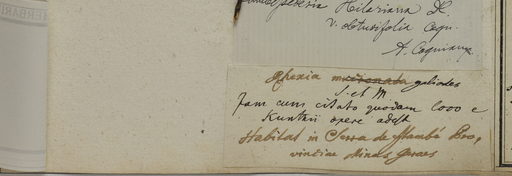 Hilariana DC.
v. obtusifolia Cogn.
A. Cogniaux
Rhexia mucronata galioides
S. et M
Jam cum citato quodam loco e
Kunthii opere adest
Habitat in Serra de Itambé Pro,
vinciae Minas Geraes